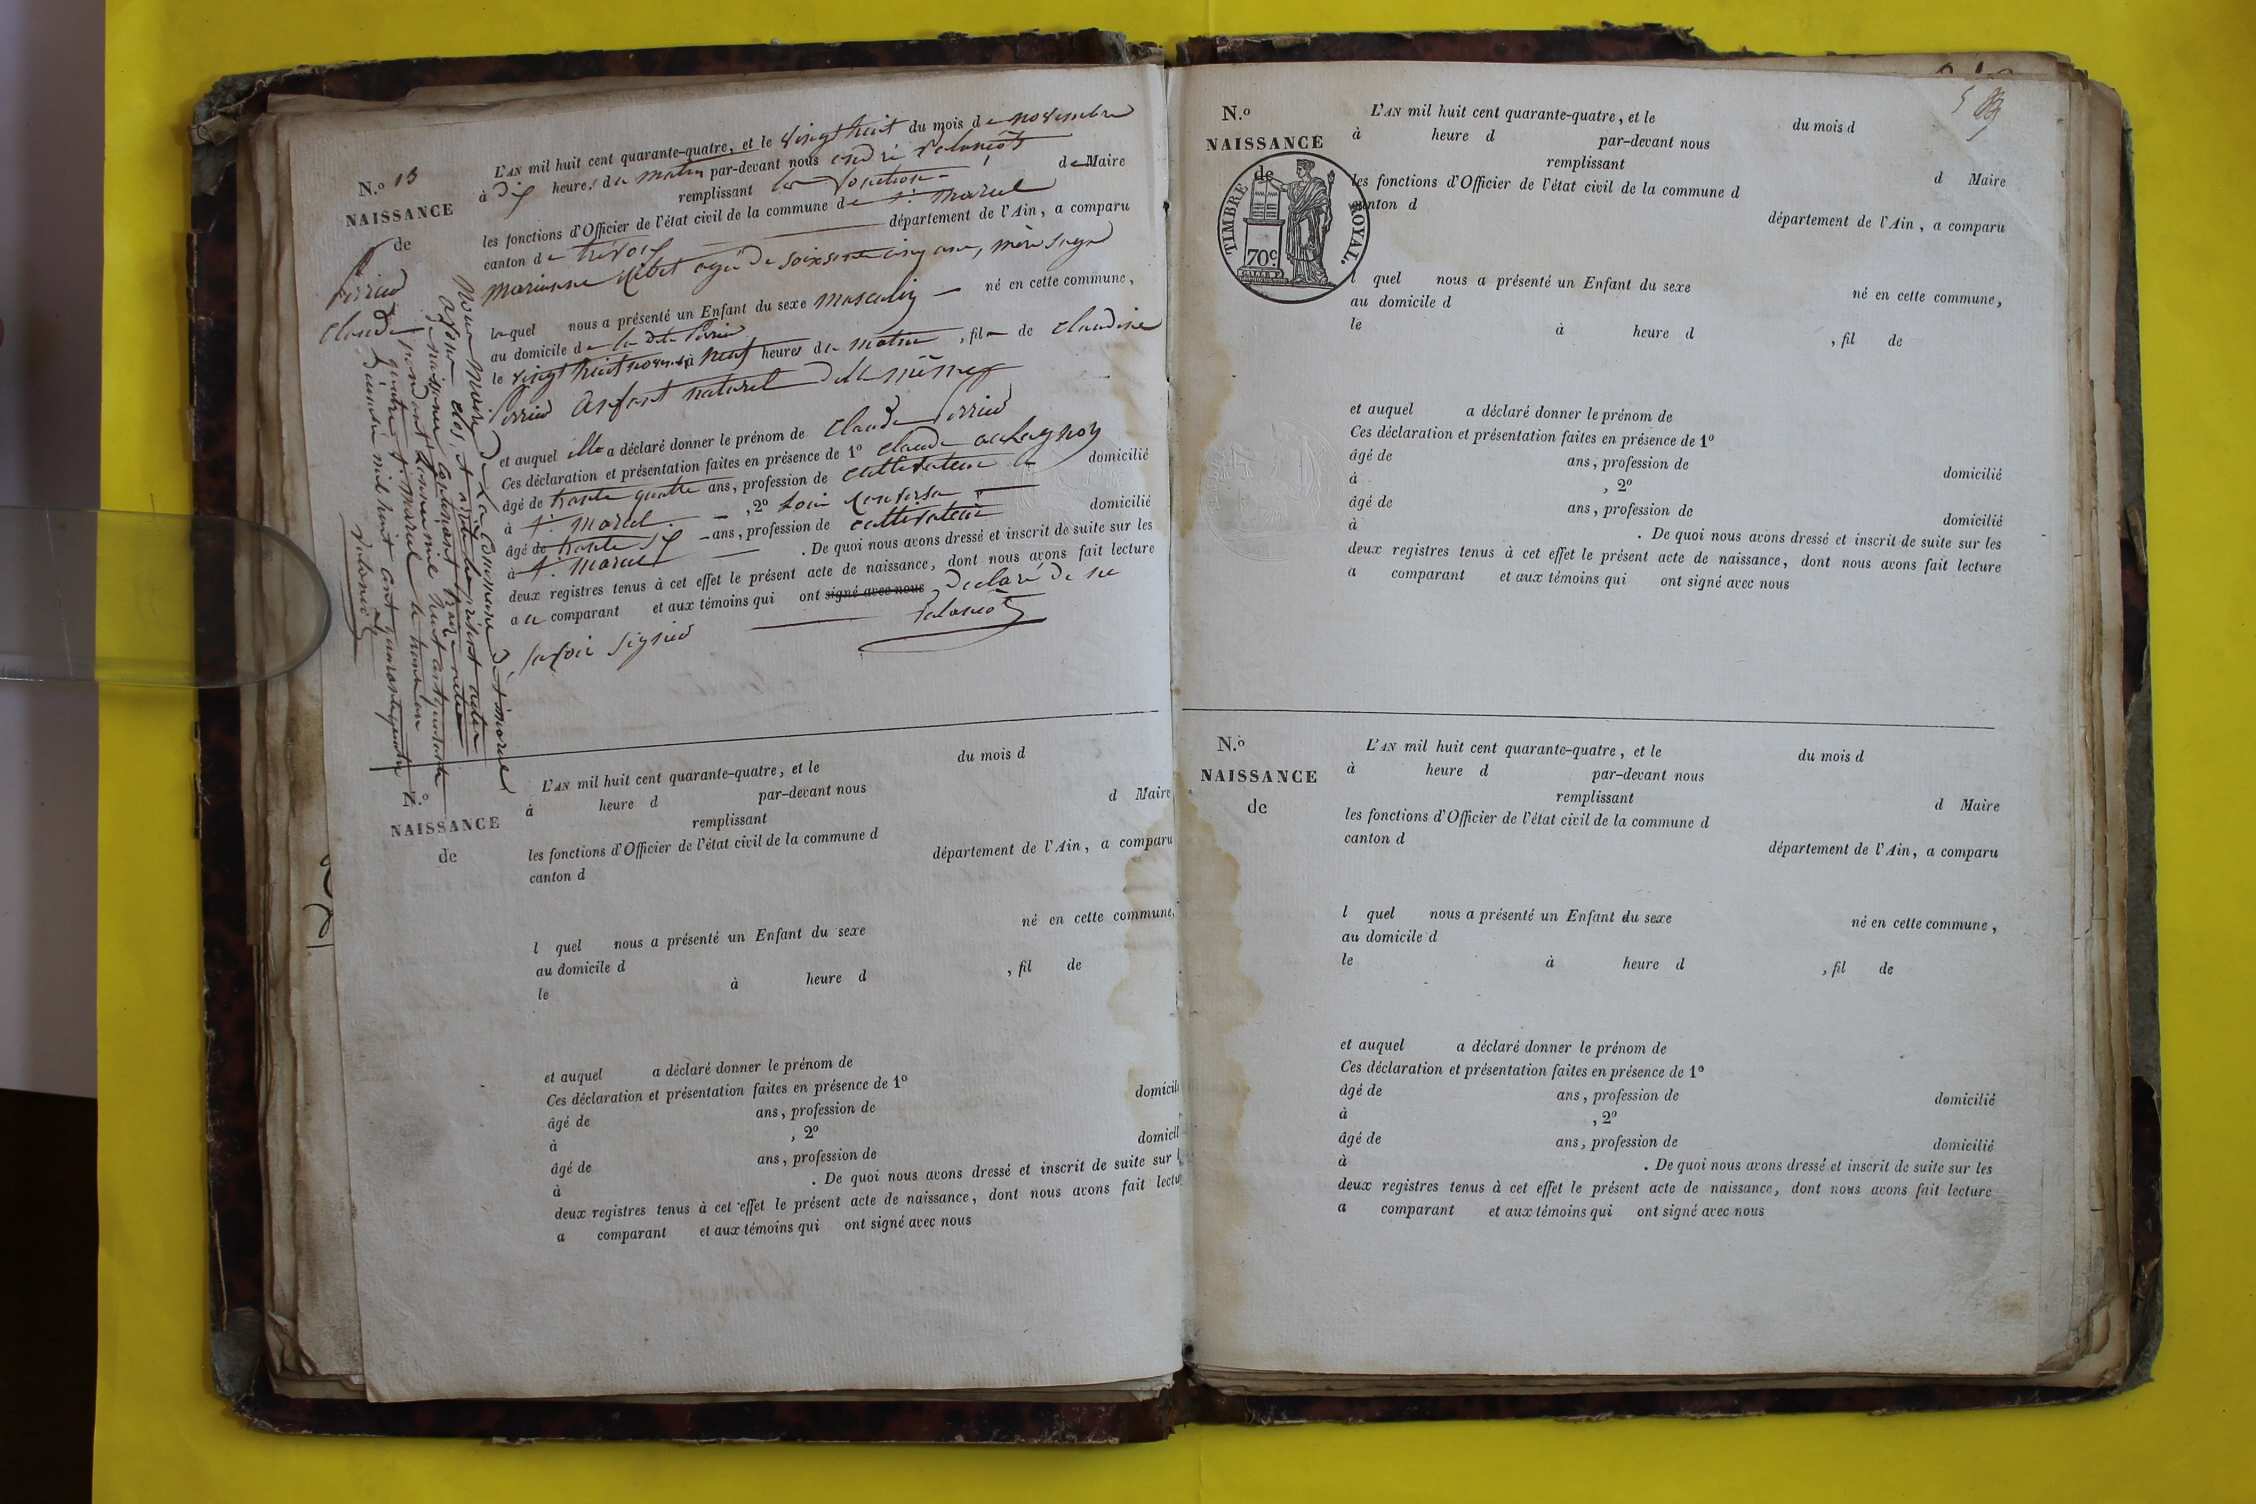 N.º 13
NAISSANCE
de
Perrier
Claude
L'AN mil huit cent quarante-quatre, et le vingt huit du mois de novembre
à dix heures du matin par-devant nous andré
remplissant les fonction de Maire
les fonctions d'Officier de l'état civil de la commune de St. Marcel
canton de trévoux département de l'Ain, a comparu
marianne agé de soixante cinq ans, mère sage
laquel nous a présenté un Enfant du sexe masculin né en cette commune,
au domicile de la dite
le vingt huit novembre à neuf heures du matin, fils de Claudine
enfant naturel de la même
et auquel elle a déclaré donner le prénom de Claude
Ces déclaration et présentation faites en présence de 1º Claude
âgé de trante quattre ans, profession de cultivateur domicilié
à St. Marcel, 2º
âgé de trante six ans, profession de cultivateur domicilié
à St. Marcel. De quoi nous avons dressé et inscrit de suite sur les
deux registres tenus à cet effet le présent acte de naissance, dont nous avons fait lecture
a la comparant et aux témoins qui ont signé avec nous declaré de ne
savoir signer
Nous Maire de la Commune de St marcel
avons clos et arreté le présent
naissance contenant treize
pendant l'année mil huit cent quarante
quatre St. Marcel le trente un
décembre mil huit cent quarante quatre
N.º
NAISSANCE
de
L'AN mil huit cent quarante-quatre, et le du mois d
à heure d par-devant nous
remplissant d Maire
les fonctions d'Officier de l'état civil de la commune d
canton d département de l'Ain, a comparu
l quel nous a présenté un Enfant du sexe né en cette commune,
au domicile d
le à heure d , fil de
et auquel a déclaré donner le prénom de
Ces déclaration et présentation faites en présence de 1º
âgé de ans, profession de domicilié
à , 2º
âgé de ans, profession de domicil
à . De quoi nous avons dressé et inscrit de suite sur l
deux registres tenus à cet effet le présent acte de naissance, dont nous avons fait lectu
a comparant et aux témoins qui ont signé avec nous
N.º
NAISSANCE
de
TIMBRE ROYAL.
70 c.
L'AN mil huit cent quarante-quatre, et le du mois d
à heure d par-devant nous
remplissant d Maire
les fonctions d'Officier de l'état civil de la commune d
canton d département de l'Ain, a comparu
l quel nous a présenté un Enfant du sexe né en cette commune,
au domicile d
le à heure d , fil de
et auquel a déclaré donner le prénom de
Ces déclaration et présentation faites en présence de 1º
âgé de ans, profession de domicilié
à , 2º
âgé de ans, profession de domicilié
à . De quoi nous avons dressé et inscrit de suite sur les
deux registres tenus à cet effet le présent acte de naissance, dont nous avons fait lecture
a comparant et aux témoins qui ont signé avec nous
N.º
NAISSANCE
de
L'AN mil huit cent quarante-quatre, et le du mois d
à heure d par-devant nous
remplissant d Maire
les fonctions d'Officier de l'état civil de la commune d
canton d département de l'Ain, a comparu
l quel nous a présenté un Enfant du sexe né en cette commune,
au domicile d
le à heure d , fil de
et auquel a déclaré donner le prénom de
Ces déclaration et présentation faites en présence de 1º
âgé de ans, profession de domicilié
à , 2º
âgé de ans, profession de domicilié
à . De quoi nous avons dressé et inscrit de suite sur les
deux registres tenus à cet effet le présent acte de naissance, dont nous avons fait lecture
a comparant et aux témoins qui ont signé avec nous